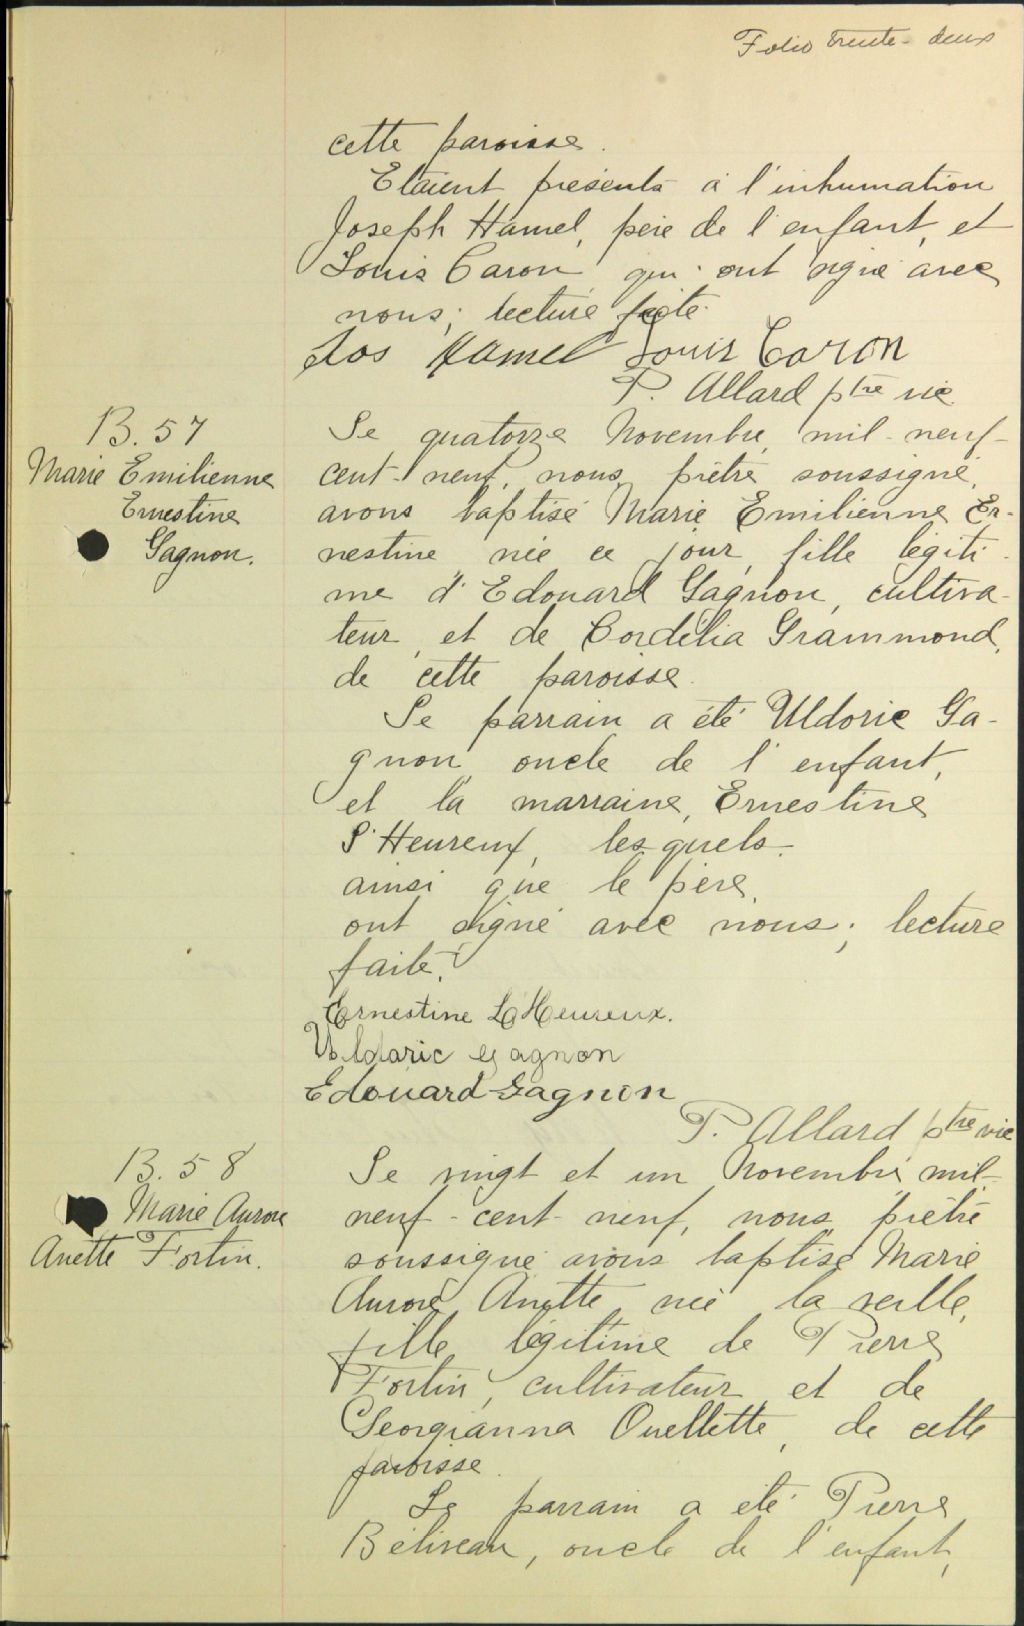 Folio trente-deux
cette paroisse.
Etaient présents à l'inhumation
Joseph Hamel, père de l'enfant, et
Louis Caron qui ont signé avec
nous; lecture faite.
Jos Hamel Louis Caron
P. Allard ptre vic.
B. 57
Marie Emilienne
Ernestine
Gagnon.
Le quatorze Novembre mil-neuf-
cent-neuf, nous, prêtre soussigné,
avons baptisé Marie Emilienne Er-
nestine née ce jour, fille légiti-
me d'Edouard Gagnon, cultiva-
teur, et de Cordélia Grammond,
de cette paroisse.
Le parrain a été Uldoric Ga-
gnon, oncle de l'enfant,
et la marraine, Ernestine
L'Heureux, les quels
ainsi que le père,
ont signé avec nous; lecture
faite.
Ernestine L'Heureux.
Uldaric Gagnon
Edouard Gagnon
P. Allard ptre vic
B. 58
Marie Aurore
Anette Fortin.
Le vingt et un Novembre mil-
neuf-cent-neuf, nous, prêtre
soussigné avons baptisé Marie
Aurore Anette née la veille,
fille légitime de Pierre
Fortin, cultivateur et de
Georgianna Ouellette, de cette
paroisse.
Le parrain a été Pierre
Béliveau, oncle de l'enfant,